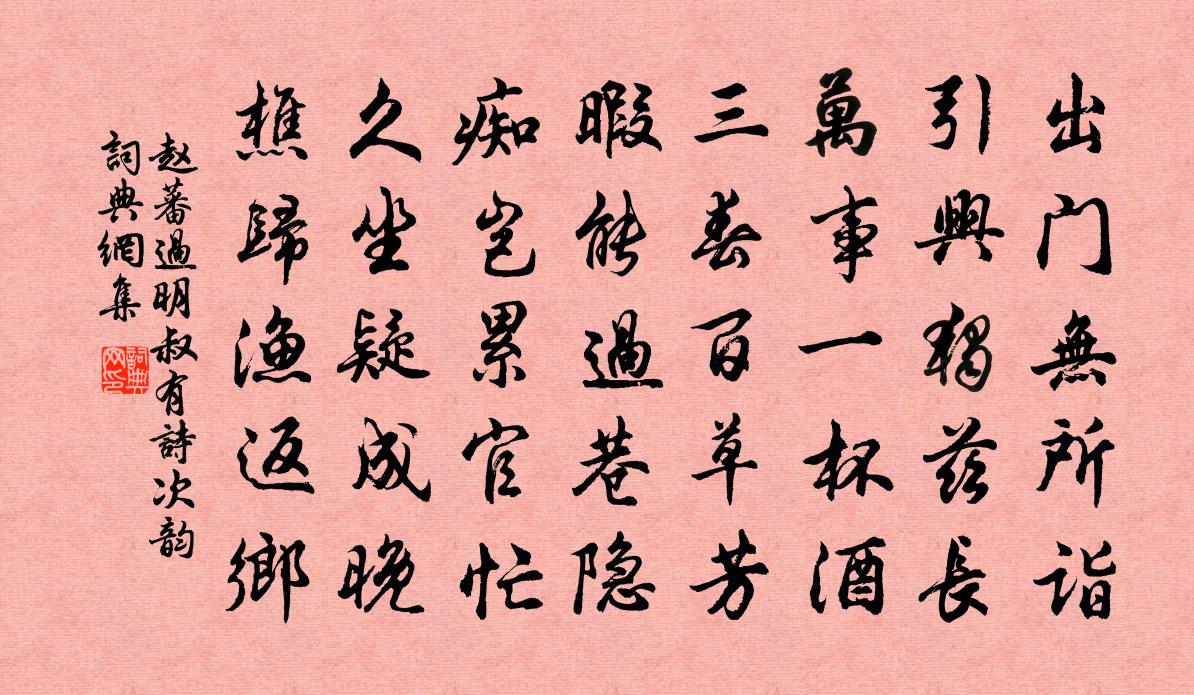 出门無所詣
引興獨兹長
萬事一杯酒
三春百草芳
暇能過巷隐
痴豈累官忙
久坐疑成晚
樵歸漁返鄉
赵蕃過明叔有詩次韵
詞典網集
詞典网印